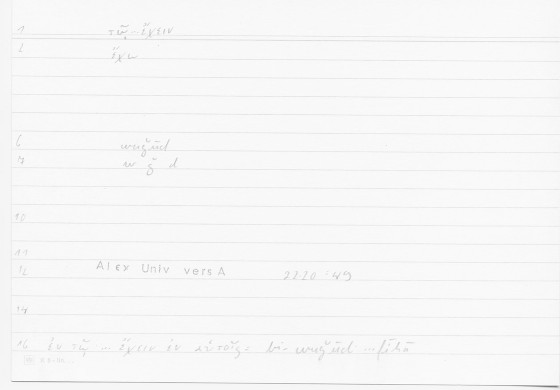 1 τῷ … ἔχειν
2 ἔχω
6 wuǧūd
7 w ǧ d
10
11
12 Alex Univ vers A 2220 : 49
14
16 ἐν τῷ … ἔχειν ἐν bi- wuǧūd … fīhā